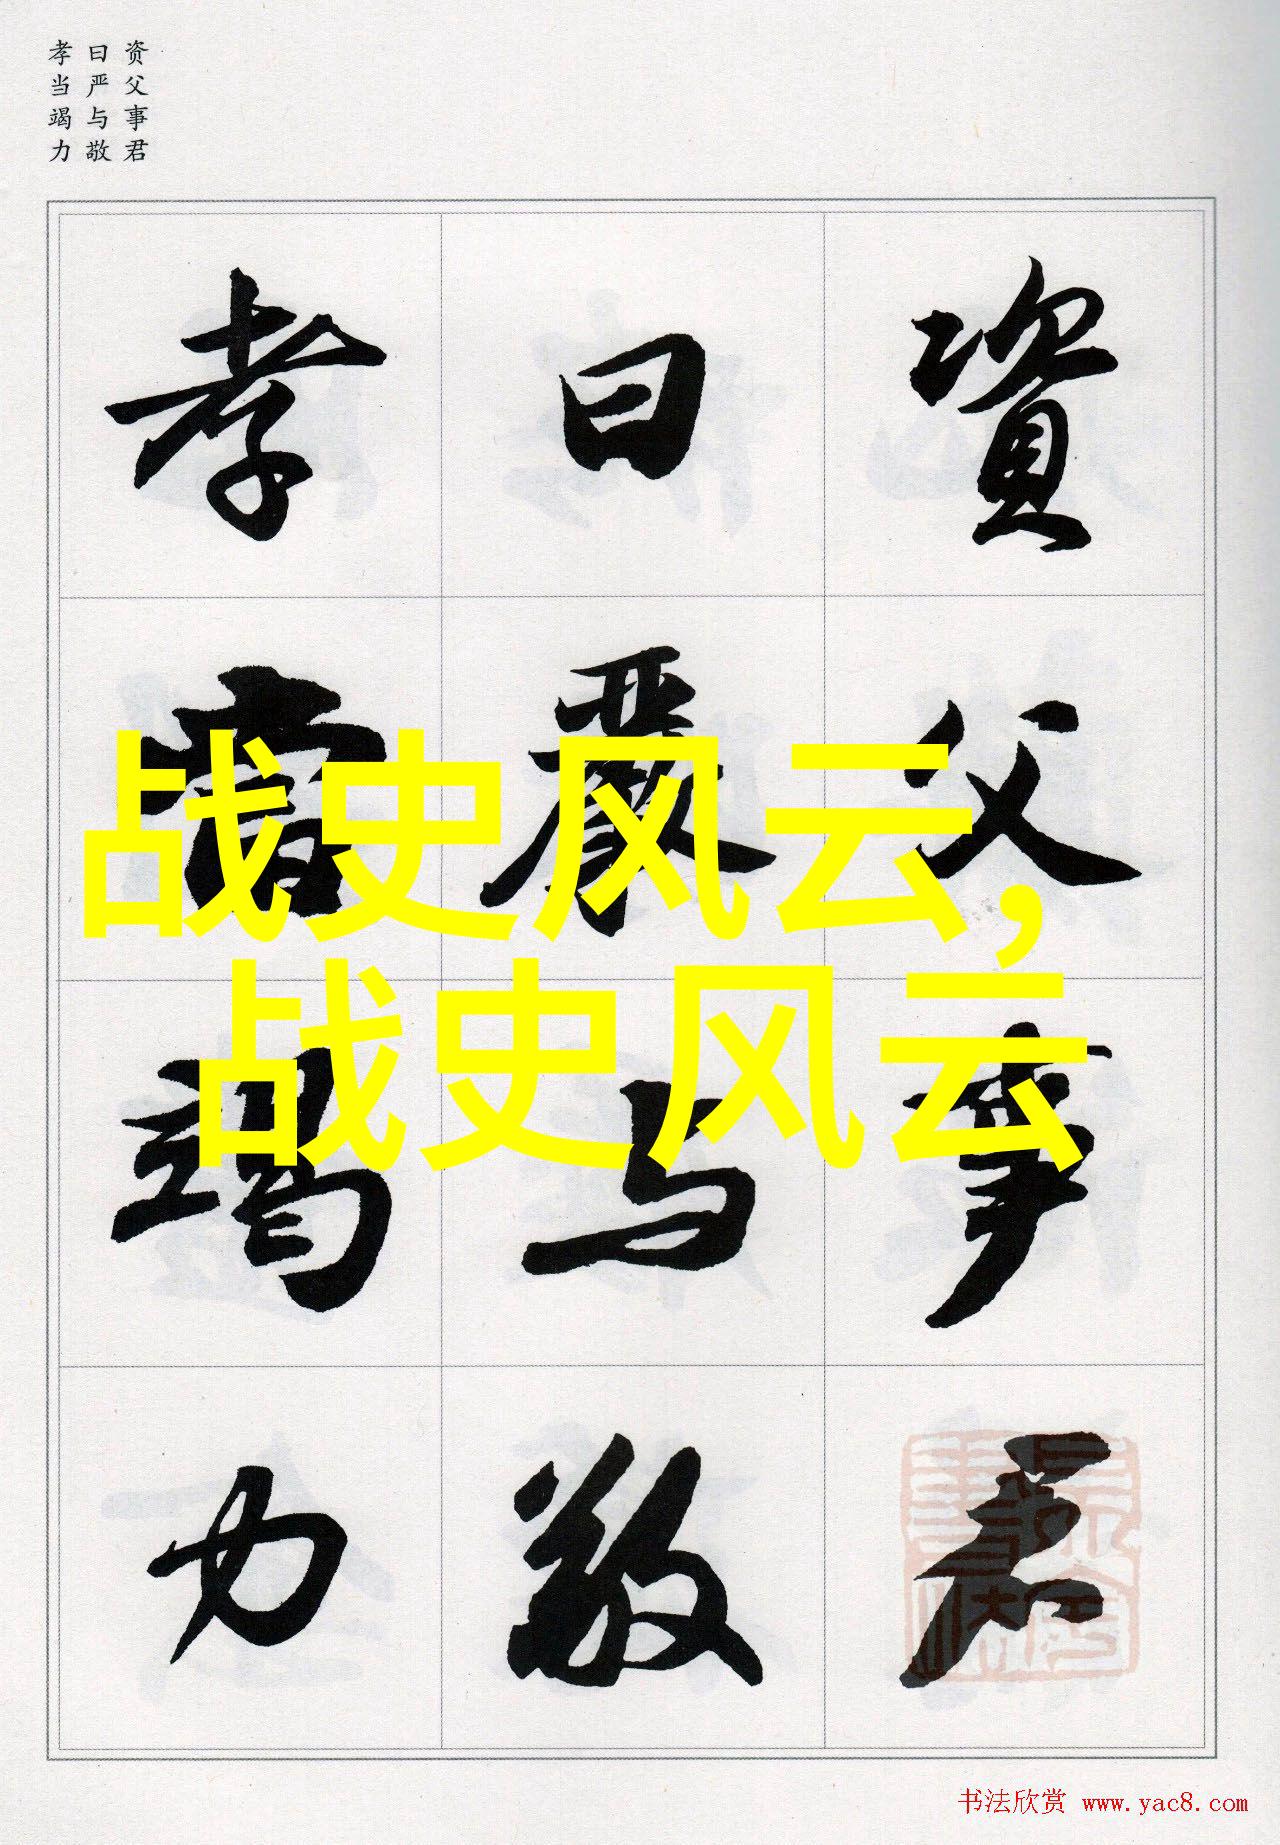 资父事君
曰严与敬
孝当竭力
資父事君
曰嚴与敬
孝當竭力
战史风云,
战史风云
书法欣赏 www.yac8.com